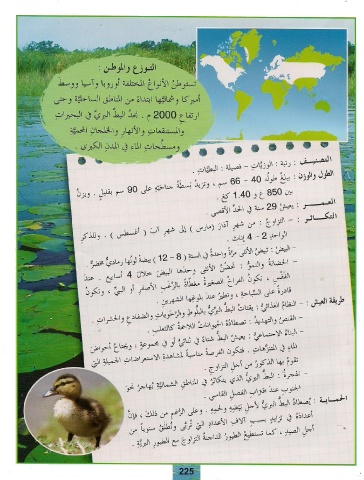 التـوزع والموطـن :
تستوطنُ الأنواعُ المختلفة أوروبا وآسيا ووسط
أميركا وشماليّها ابتداءً من المناطق الساحليَّة وحتى
ارتفاع 2000 م . نجدُ البطَّ البريَّ في البحيرات
والمستنقعات والأنهار والخلجان المحميَّة
ومسطَّحات الماء في المدن الكبرى .
التصنيـف : رتبة : الوزيّات - فصيلة : البطّيّات.
الطول والوزن : يبلغ طولُه 40 - 66 سم ، وتزيدُ بَسطةُ جناحَيْه على 90 سم بقليلٍ . ويزنُ
بين 850 غ و 1.40 كغ .
العمــــر : يعيشُ 29 سنة في الحدّ الأقصى.
التكـــاثر : - التزاوج : من شهر آذار (مارس) إلى شهر آب ( أغسطس ) . وللذكر
الواحد 2 - 4 إناث .
- البيض : تبيضُ الأنثى مرةً واحدةً في السنة (8 - 12) بيضة لونُها رماديٌّ مخضرّ
- الحضانة والنموّ : تحضنُ الأنثى وحدَها البيضَ خلال 4 أسابيع . عند
الفَقْسِ ، تكونُ الفراخُ الصغيرةُ مغطّاةً بالزَّغبِ الأصفر أو البنّي ، وتكونُ
قادرةً على السِّباحة ، وتطيرُ عند بلوغها الشهرين .
طريقة العيش : - النظامُ الغذائيُّ : يقتاتُ البطُّ البريُّ بالبلّوط والرَّخويات والضفادع والحشرات .
- القنصُ والتهديدُ : تصطادُهُ الحيواناتُ اللاحمة كالثعلب .
- البناءُ الاجتماعيُّ : يعيشُ البطُّ شتاءً في ثنائيٍّ أو في مجموعةٍ ، ويجتاحُ أحواضَ
الماء في المتنزَّهات. فتكونُ الفرصةُ مناسبةً لمشاهدة الاستعراضات الجميلة التي
تقومُ بها الذكورُ من أجلِ التزاوج .
- الهجرةُ : البطُّ البريُّ الذي يتكاثرُ في المناطق الشماليَّة يُهاجرُ نحو
الجنوب عندَ اقترابِ الفصلِ القاسي .
الحماية : يُصطادُ البطُّ البريُّ لأجلِ ريشِهِ ولحمِهِ . وعلى الرَّغمِ من ذلكَ ، فإنَّ
أعدادَهُ في تزايدٍ بسبب آلافِ الأعدادِ التي تُربَّى وتُطلقُ سنوياً من
أجلِ الصيدِ ، كما تستطيعُ الطيورُ الداجنةُ التزاوجَ مع الطيورِ البريَّةِ .
225